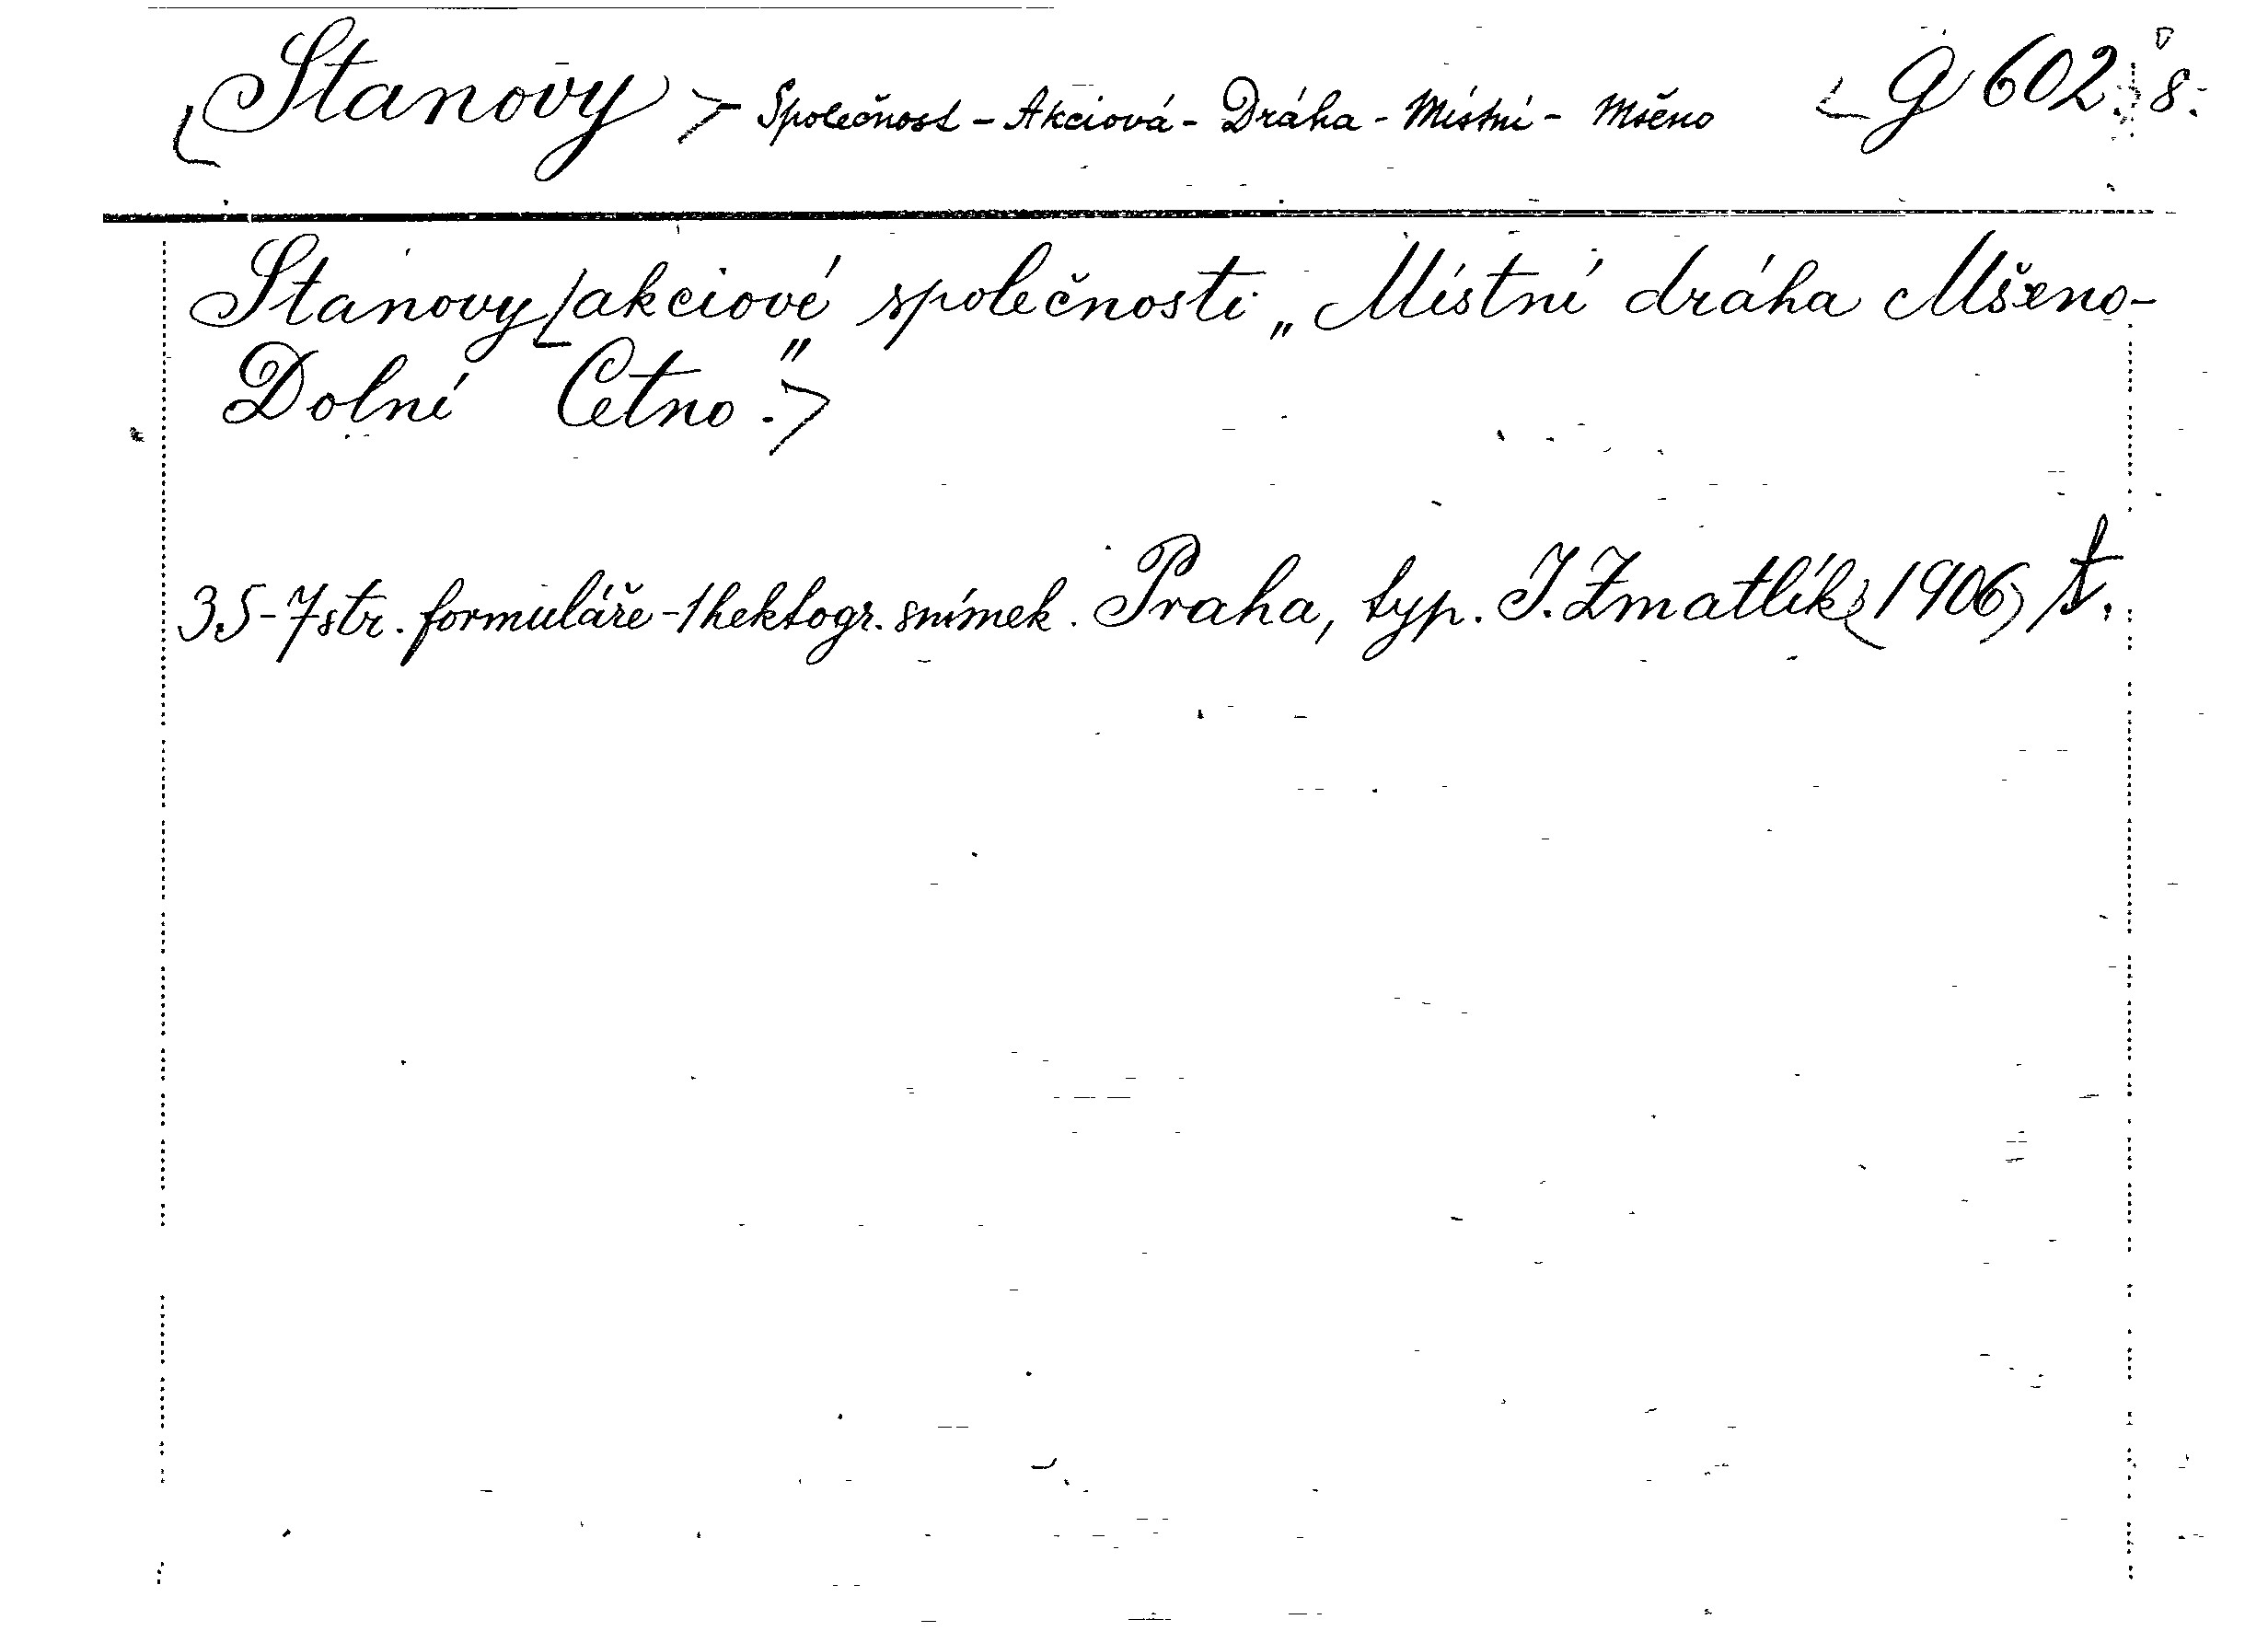 Stanovy - Společnost - Akciová - Dráha - Místní - Mšeno G 602. 8.
Stanovy akciové společnosti „Místní dráha Mšeno-
Dolní Cetno".
35-7 str. formuláře - 1 hektogr. snímek. Praha, typ. J. Zmatlík, 1906